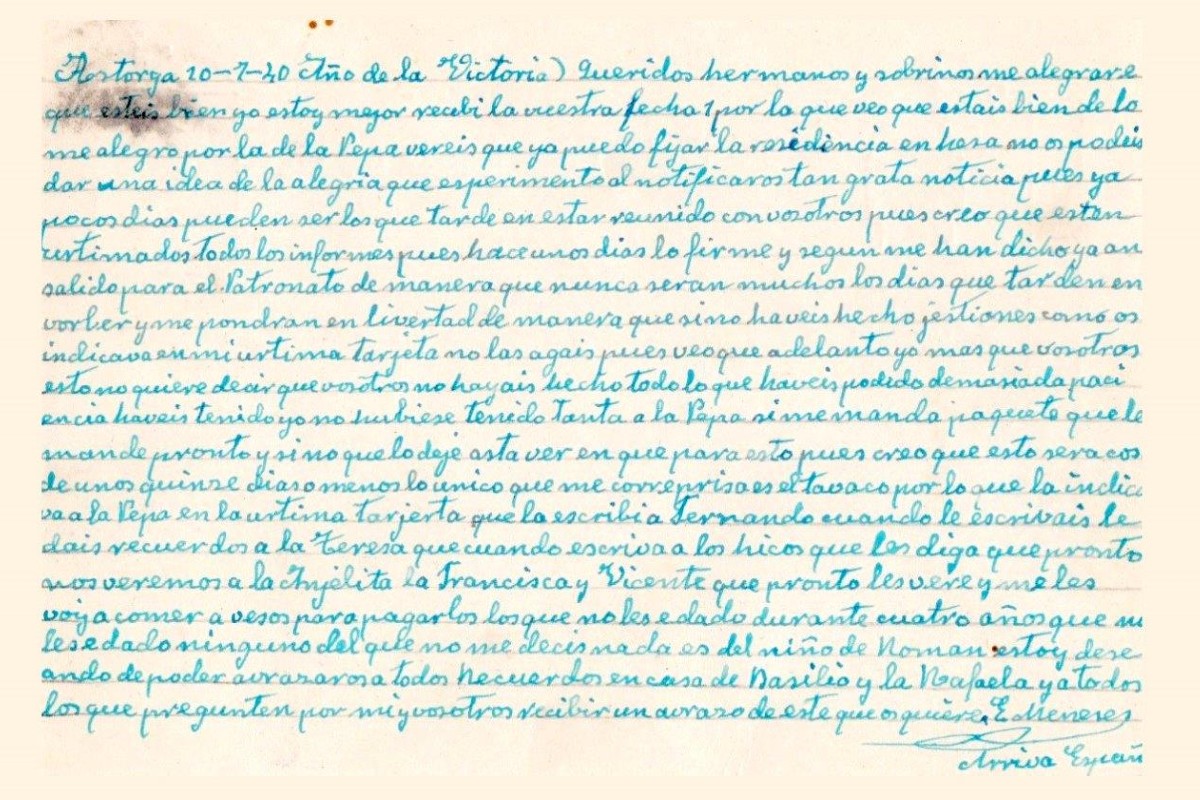 Astorga 10-7-40 Año de la Victoria) Queridos hermanos y sobrinos me alegrare
que esteis bien yo estoy mejor recibi la vuestra fecha 1 por la que veo que estais bien de lo
me alegro por la de la Pepa vereis que ya puedo fijar la residencia en hesa no os podeis
dar una idea de la alegria que esperimento al notificaros tan grata noticia pues ya
pocos dias pueden ser los que tarde en estar reunido con vosotros pues creo que esten
urtimados todos los informes pues hace unos dias lo firme y segun me han dicho ya an
salido para el Patronato de manera que nunca seran muchos los dias que tarden en
vorber y me pondran en livertad de manera que si no haveis hecho jestiones como os
indicava en mi urtima tarjeta no las agais pues veo que adelanto yo mas que vosotros
esto no quiere decir que vosotros no hayais hecho todo lo que haveis podido demasiada paci
encia haveis tenido yo no hubiese tenido tanta a la Pepa si me manda paquete que le
mande pronto y si no que lo deje asta ver en que para esto pues creo que esto sera cos
de unos quinze dias o menos lo unico que me correprisa es el tavaco por lo que la indic
va a la Pepa en la urtima tarjerta que la escribi a Fernando cuando le escrivais le
dais recuerdos a la Teresa que cuando escriva a los hicos que les diga que pronto
nos veremos a la Injelita la Francisca y Vicente que pronto les vere y me les
voy a comer a vesos para pagarlos los que no les e dado durante cuatro años que n
les e dado ninguno del que no me decis nada es del niño de Roman estoy dese
ando de poder avrazaros a todos Recuerdos en casa de Basilio y la Rafaela y a todos
los que pregunten por mi y vosotros recibir un avrazo de este que os quiere E Meneses
Arriva Españ